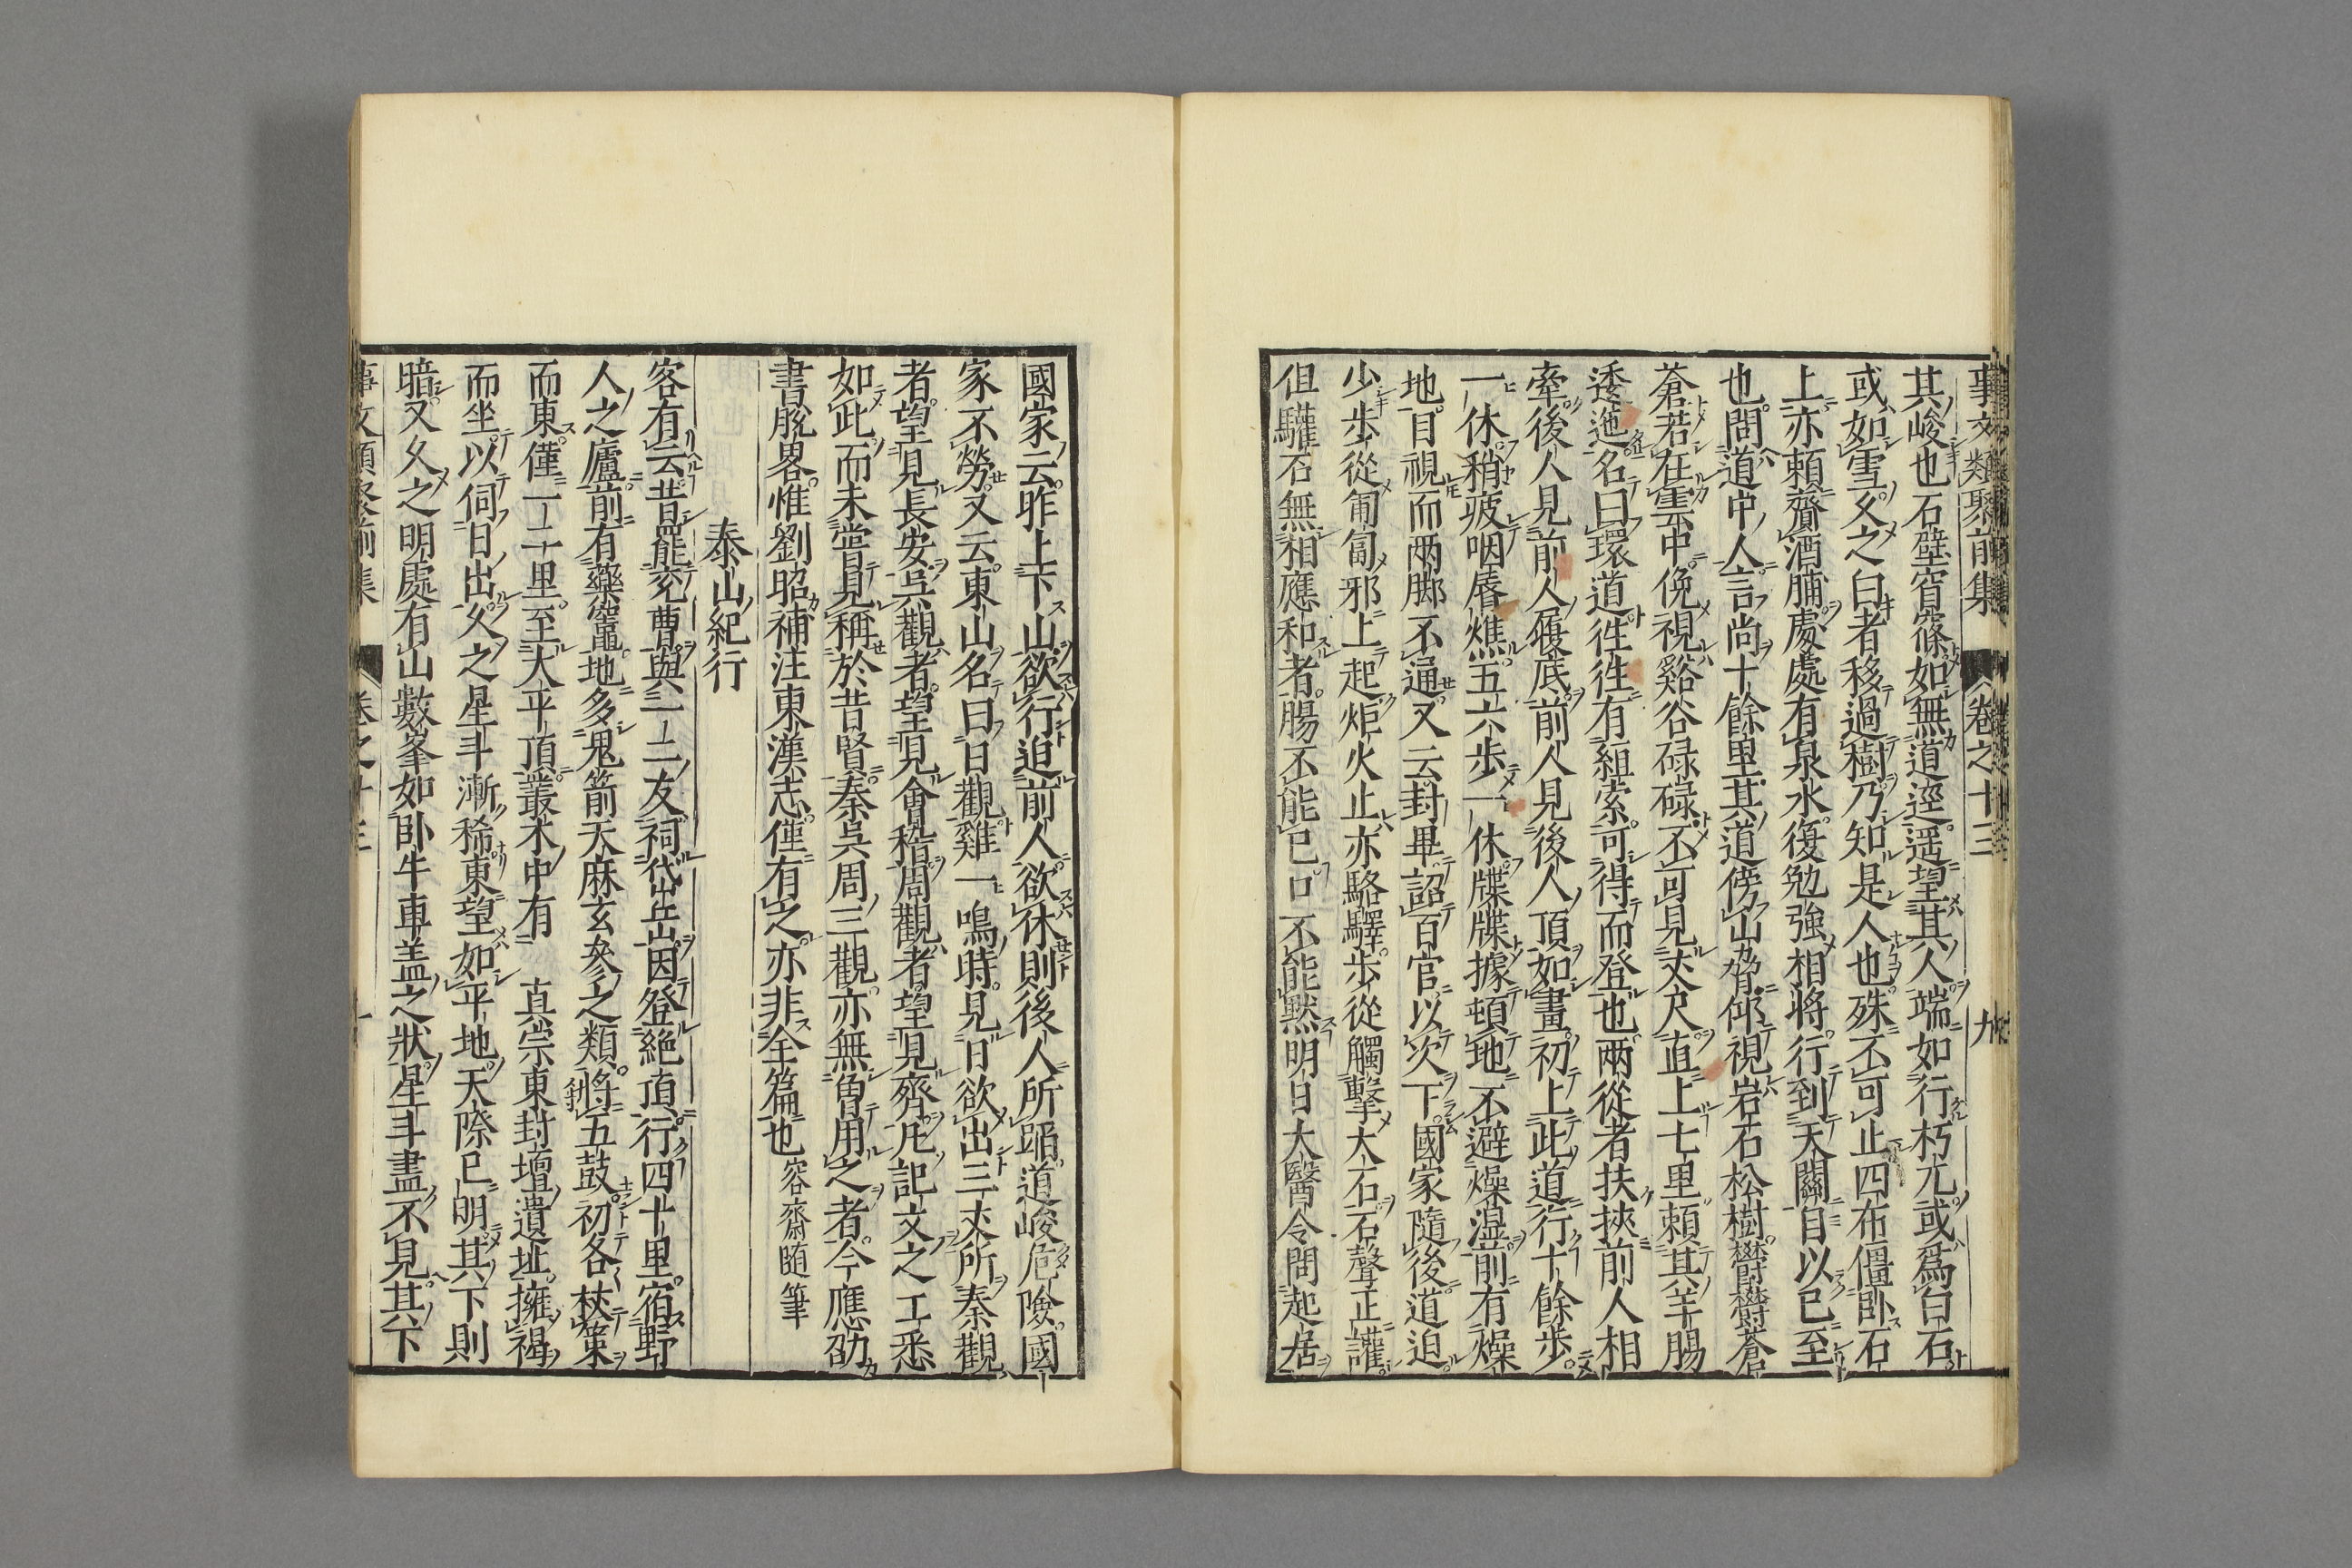 事文類聚前集 卷之十三 九
其峻也石壁窅窱如無道逕遥望其人端如行朽兀或爲白石
或如雪久之白者移過樹乃知是人也殊不可止四布僵卧石
上亦頼齎酒脯處處有泉水復勉強相將行到天關自以已至
也問道中人言尚十餘里其道傍山脅仰視岩石松樹欝欝蒼
蒼若在雲中俛視谿谷碌碌不可見丈尺直上七里頼其羊腸
逶迤名曰環道徃徃有絙索可得而登也兩從者扶挾前人相
牽後人見前人履底前人見後人頂如畫初上此道行十餘歩
一休稍疲咽脣燋五六歩一休牒牒據頓地不避燥湿前有燥
地目視而両脚不通又云封畢詔百官以次下國家隨後道迫
少歩從匍匐邪上起炬火止亦駱驛歩從觸擊大石石聲正讙
但讙石無相應和者腸不能已口不能黙明日大醫令問起居
國家云昨上下山欲行迫前人欲休則後人所蹈道峻危險國
家不勞又云東山名曰日觀雞一鳴時見日欲出三丈所秦觀
者望見長安呉觀者望見會稽周觀者望見齊凡記文之工悉
如此而未甞見稱於昔賢秦呉周三觀亦無曾用之者今應劭
書脱畧惟劉昭補注東漢志僅有之亦非全篇也 容齋随筆
泰山紀行
客有云昔罷兖曹與一二友祠岱岳因登絶頂行四十里宿野
人之廬前有藥竈地多鬼箭天麻玄參之類將五鼓初各杖策
而東僅一二十里至大平頂叢木中有 真宗東封壇遺址擁褐
而坐以伺日出久之星斗漸稀東望如平地天際已明其下則
暗又久之明處有山數峯如卧牛車盖之狀星斗盡不見其下
事文類聚前集 卷之十三